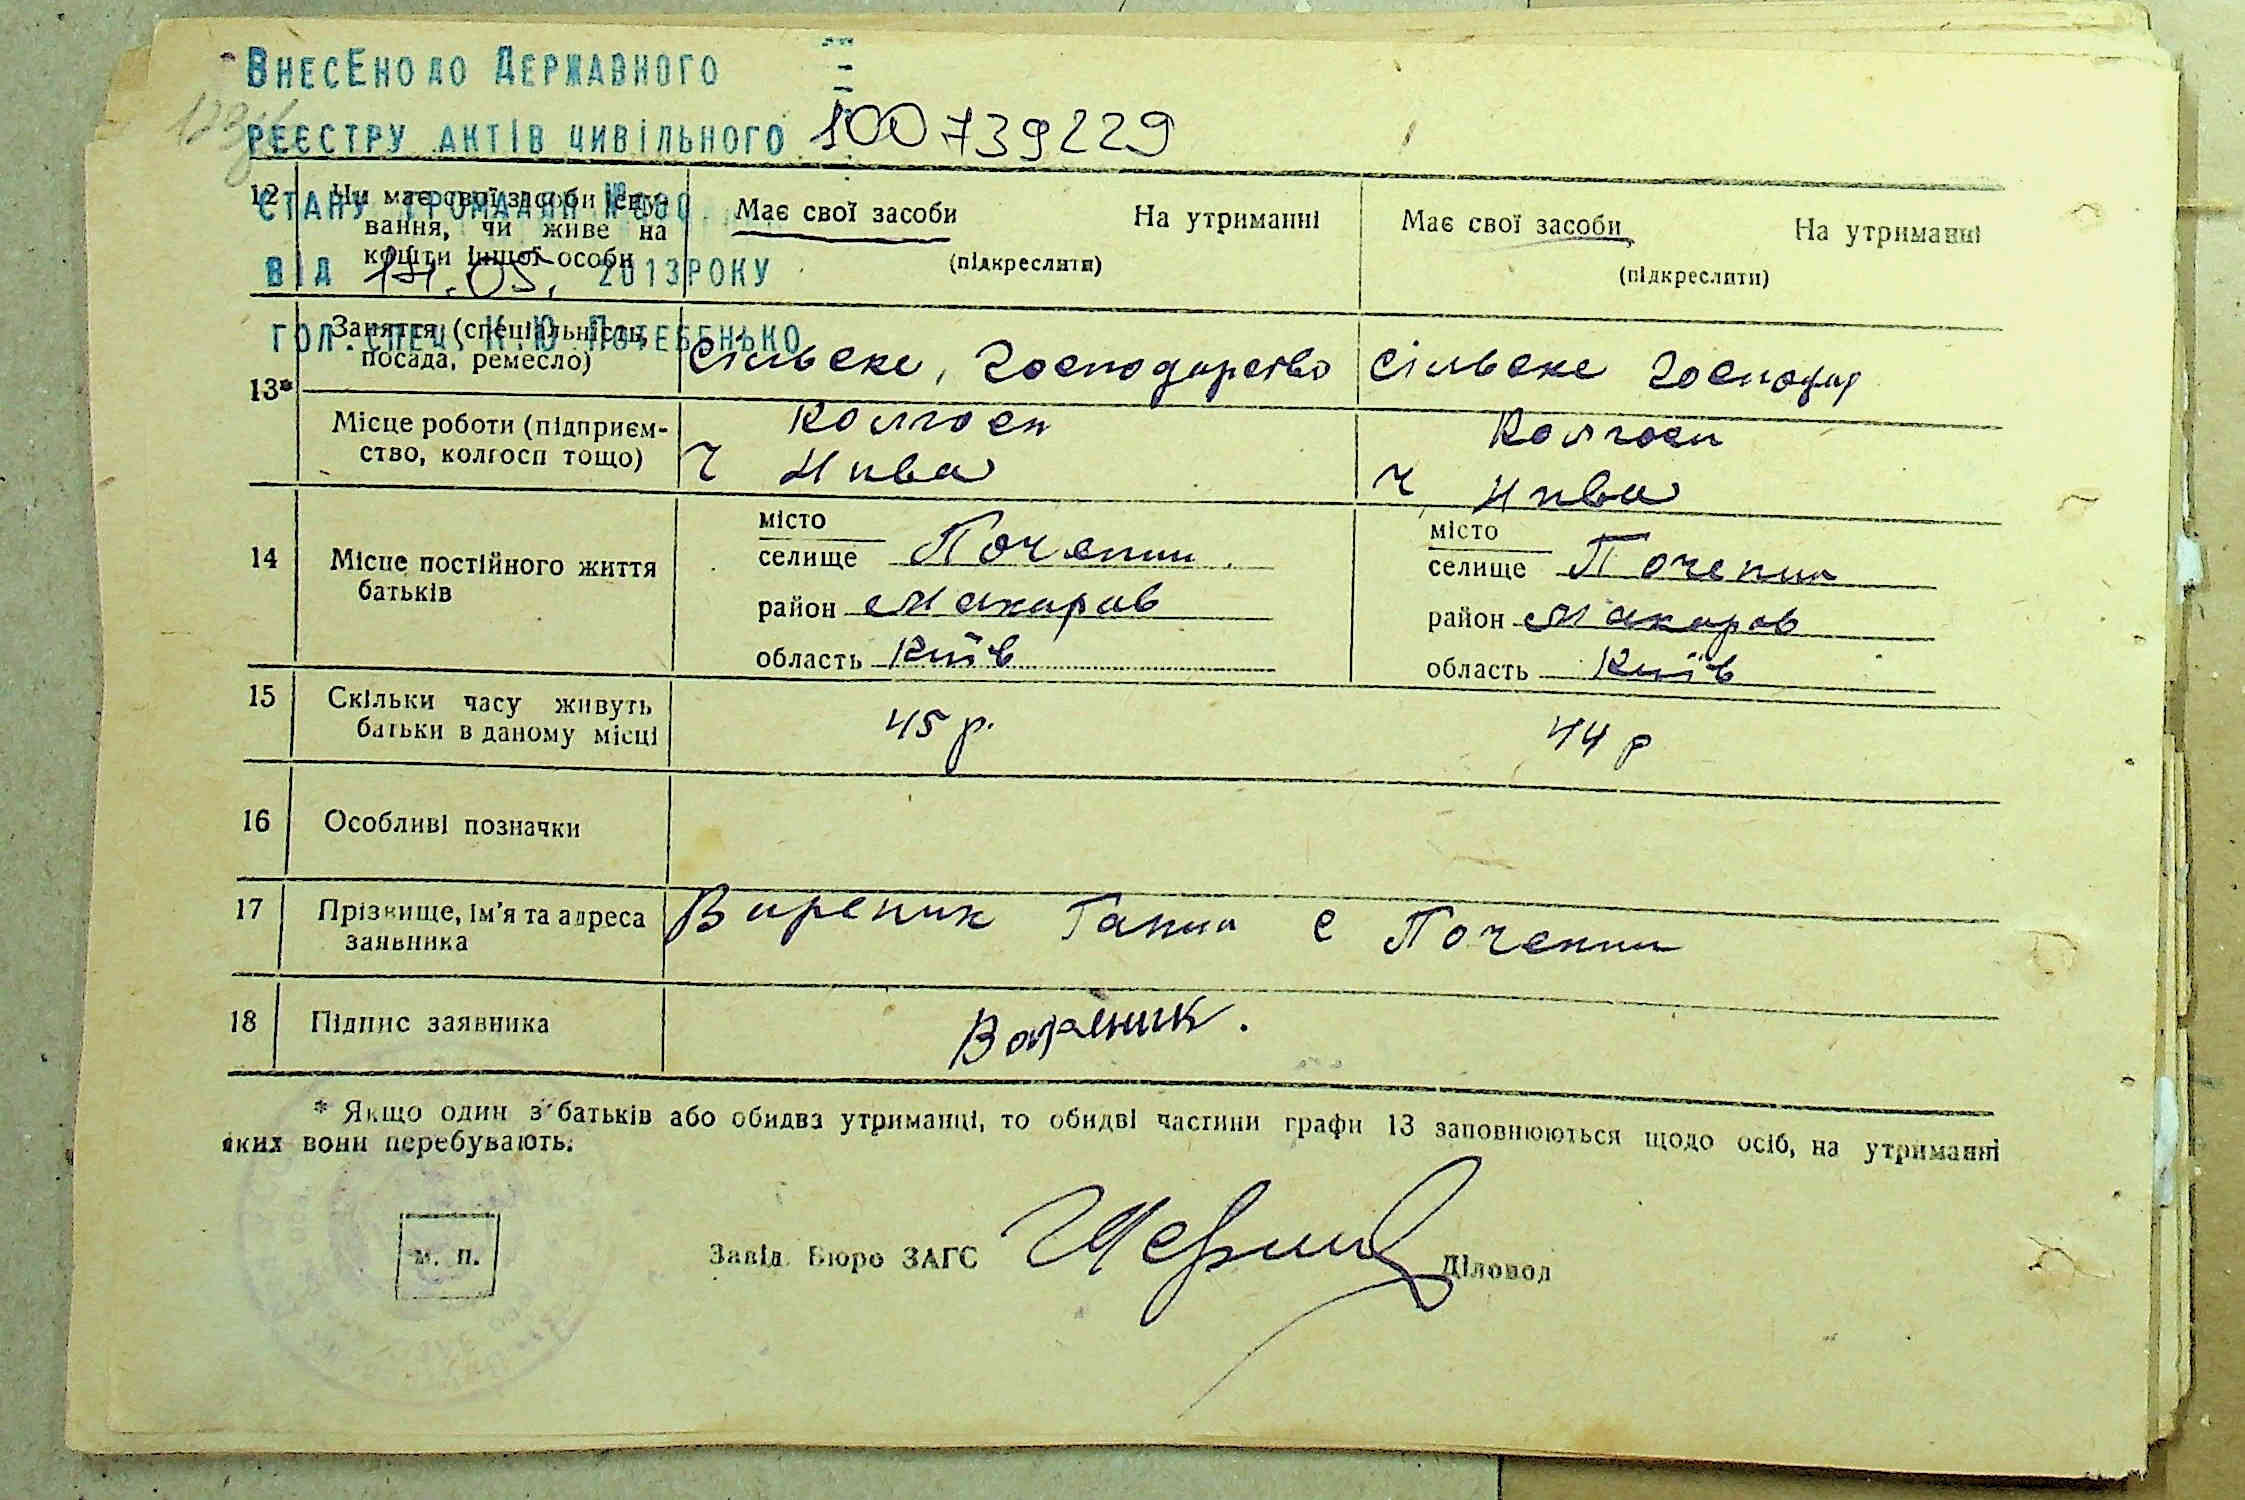 ВНЕСЕНО ДО ДЕРЖАВНОГО
РЕЄСТРУ АКТІВ ЦИВІЛЬНОГО 100739229
СТАНУ ГРОМАДЯН №
ВІД 14.05. 2013РОКУ
ГОЛ.СПЕЦ. К.Ю ПОТЕБЕНЬКО
12 Чи має свої засоби існу-
вання, чи живе на
кошти іншої особи
Має свої засоби На утриманні
(підкреслити)
Має свої засоби На утриманні
(підкреслити)
13*
Заняття (спеціальність,
посада, ремесло)
сільське господарство
сільське господар
Місце роботи (підприєм-
ство, колгосп тощо)
колгосп
Ч Нива
колгосп
Ч Нива
14 Місце постійного життя
батьків
місто
селище Почепин
район Макарів
область Київ
місто
селище Почепин
район Макарів
область Київ
15 Скільки часу живуть
батьки в даному місці
45 р.
44 р
16 Особливі позначки
17 Прізвище, ім'я та адреса
заявника
Вареник Ганна с Почепин
18 Підпис заявника
Вареник.
* Якщо один з батьків або обидва утриманці, то обидві частини графи 13 заповнюються щодо осіб, на утриманні
яких вони перебувають.
М. П.
Завід. Бюро ЗАГС
Діловод